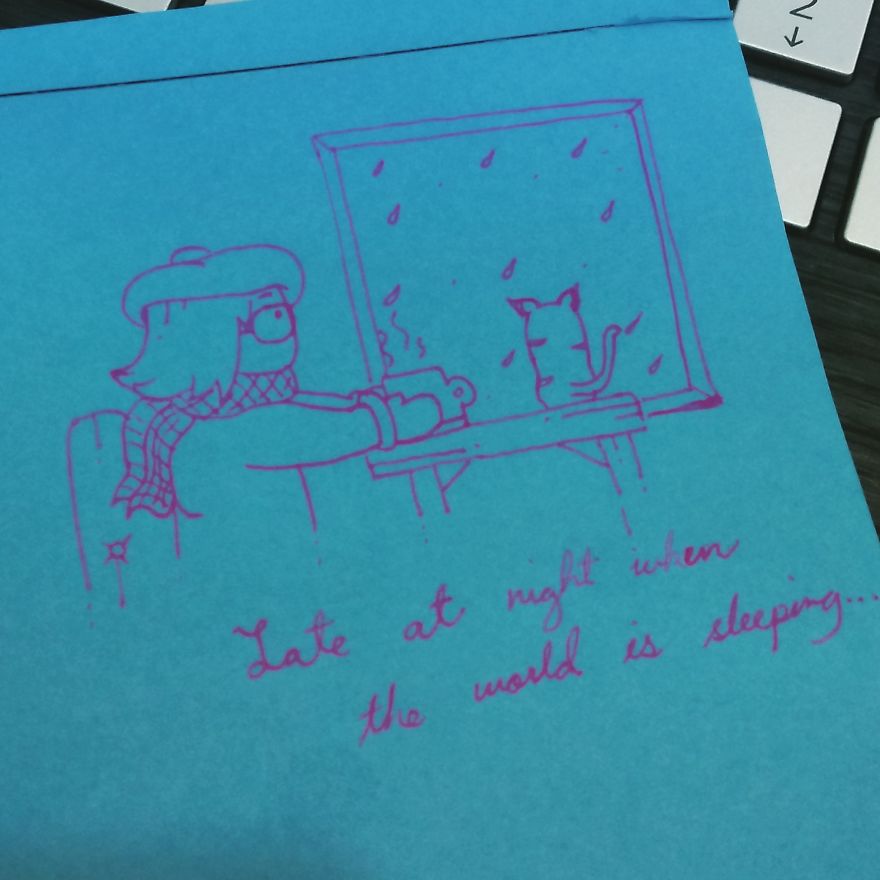 2
↓
Late at night when
the world is sleeping...